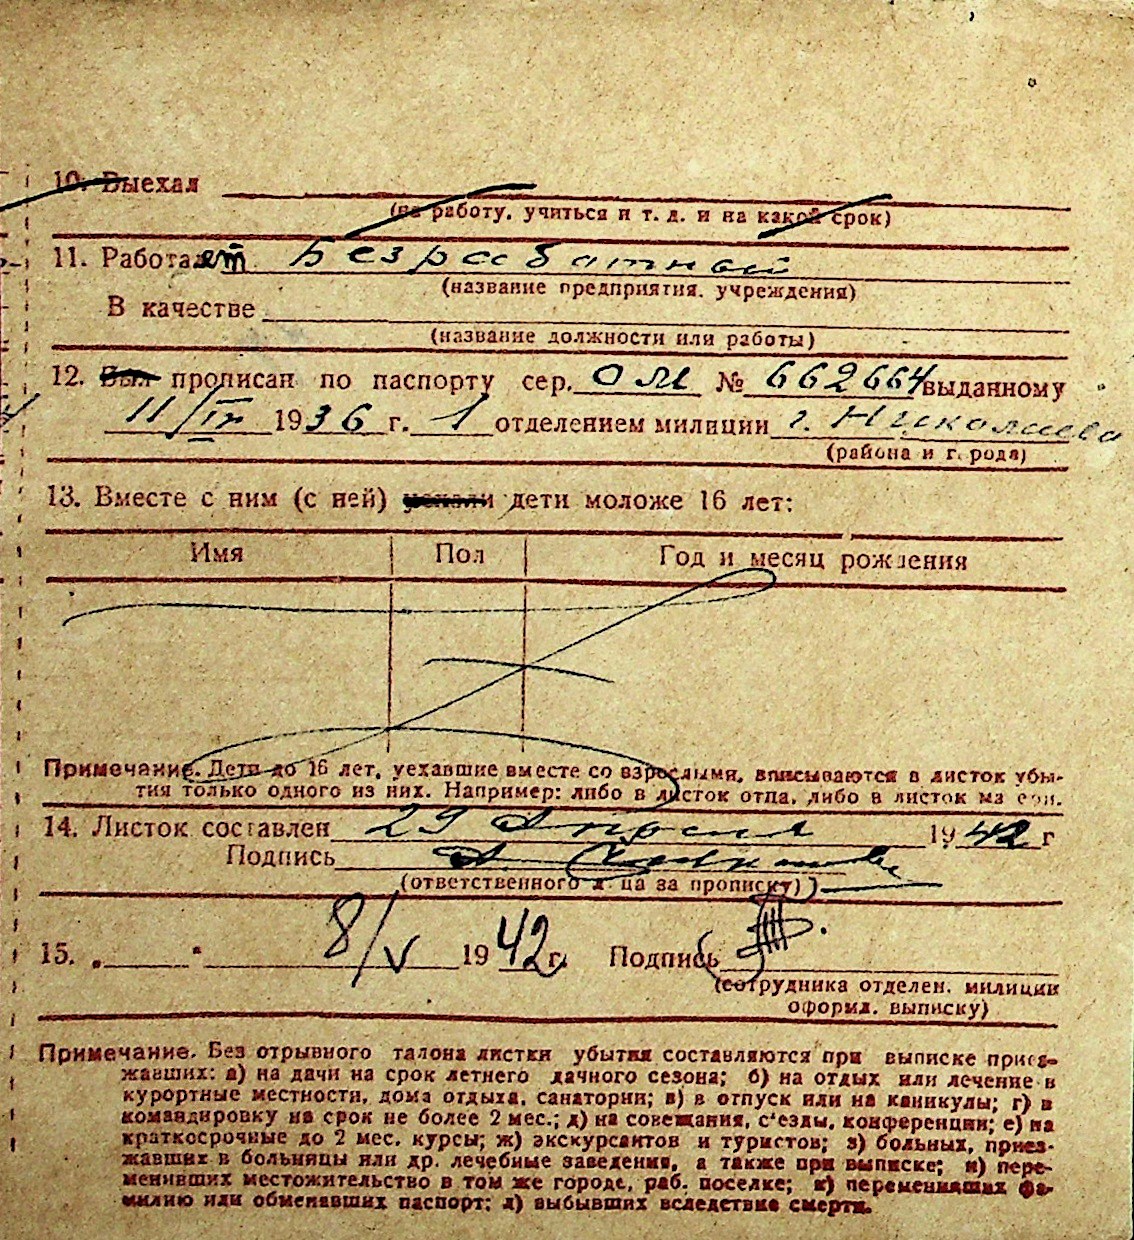 10. Выехал
(на работу, учиться и т. д. и на какой срок)
11. Работает Безработный
(название предприятия, учреждения)
В качестве
(название должности или работы)
12. Был прописан по паспорту сер. ОМ № 662664 выданному
11/IV 1936 г. 1 отделением милиции г. Николаева
(района и г. рода)
13. Вместе с ним (с ней) уехали дети моложе 16 лет:
Имя Пол Год и месяц рождения
Примечание. Дети до 16 лет, уехавшие вместе со взрослыми, вписываются в листок убы-
тия только одного из них. Например: либо в листок отца, либо в листок матери.
14. Листок составлен 29 Апреля 1942 г
Подпись
(ответственного лица за прописку)
15. „ " 8/V 1942 г. Подпись
(сотрудника отделен. милиции
оформл. выписку)
Примечание. Без отрывного талона листки убытия составляются при выписке приез-
жавших: а) на дачи на срок летнего дачного сезона; б) на отдых или лечение в
курортные местности, дома отдыха, санатории; в) в отпуск или на каникулы; г) в
командировку на срок не более 2 мес.; д) на совещания, с'езды, конференции; е) на
краткосрочные до 2 мес. курсы; ж) экскурсантов и туристов; з) больных, приез-
жавших в больницы или др. лечебные заведения, а также при выписке; и) пере-
менивших местожительство в том же городе, раб. поселке; к) переменивших фа-
милию или обменавших паспорт; л) выбывших вследствие смерти.